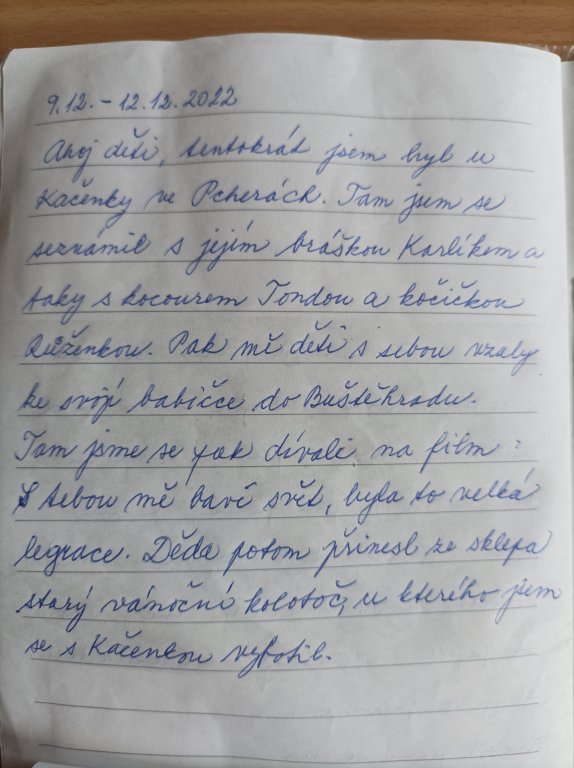 9.12. - 12.12.2022
Ahoj děti, tentokrát jsem byl u
Kačenky ve Pcherách. Tam jsem se
seznámil s jejím bráškou Karlíkem a
taky s kocourem Tondou a kočičkou
Růženkou. Pak mě děti s sebou vzaly
ke svojí babičce do Buštěhradu.
Tam jsme se pak dívali na film :
S tebou mě baví svět, byla to velká
legrace. Děda potom přinesl ze sklepa
starý vánoční kolotoč, u kterého jsem
se s Kačenkou vyfotil.